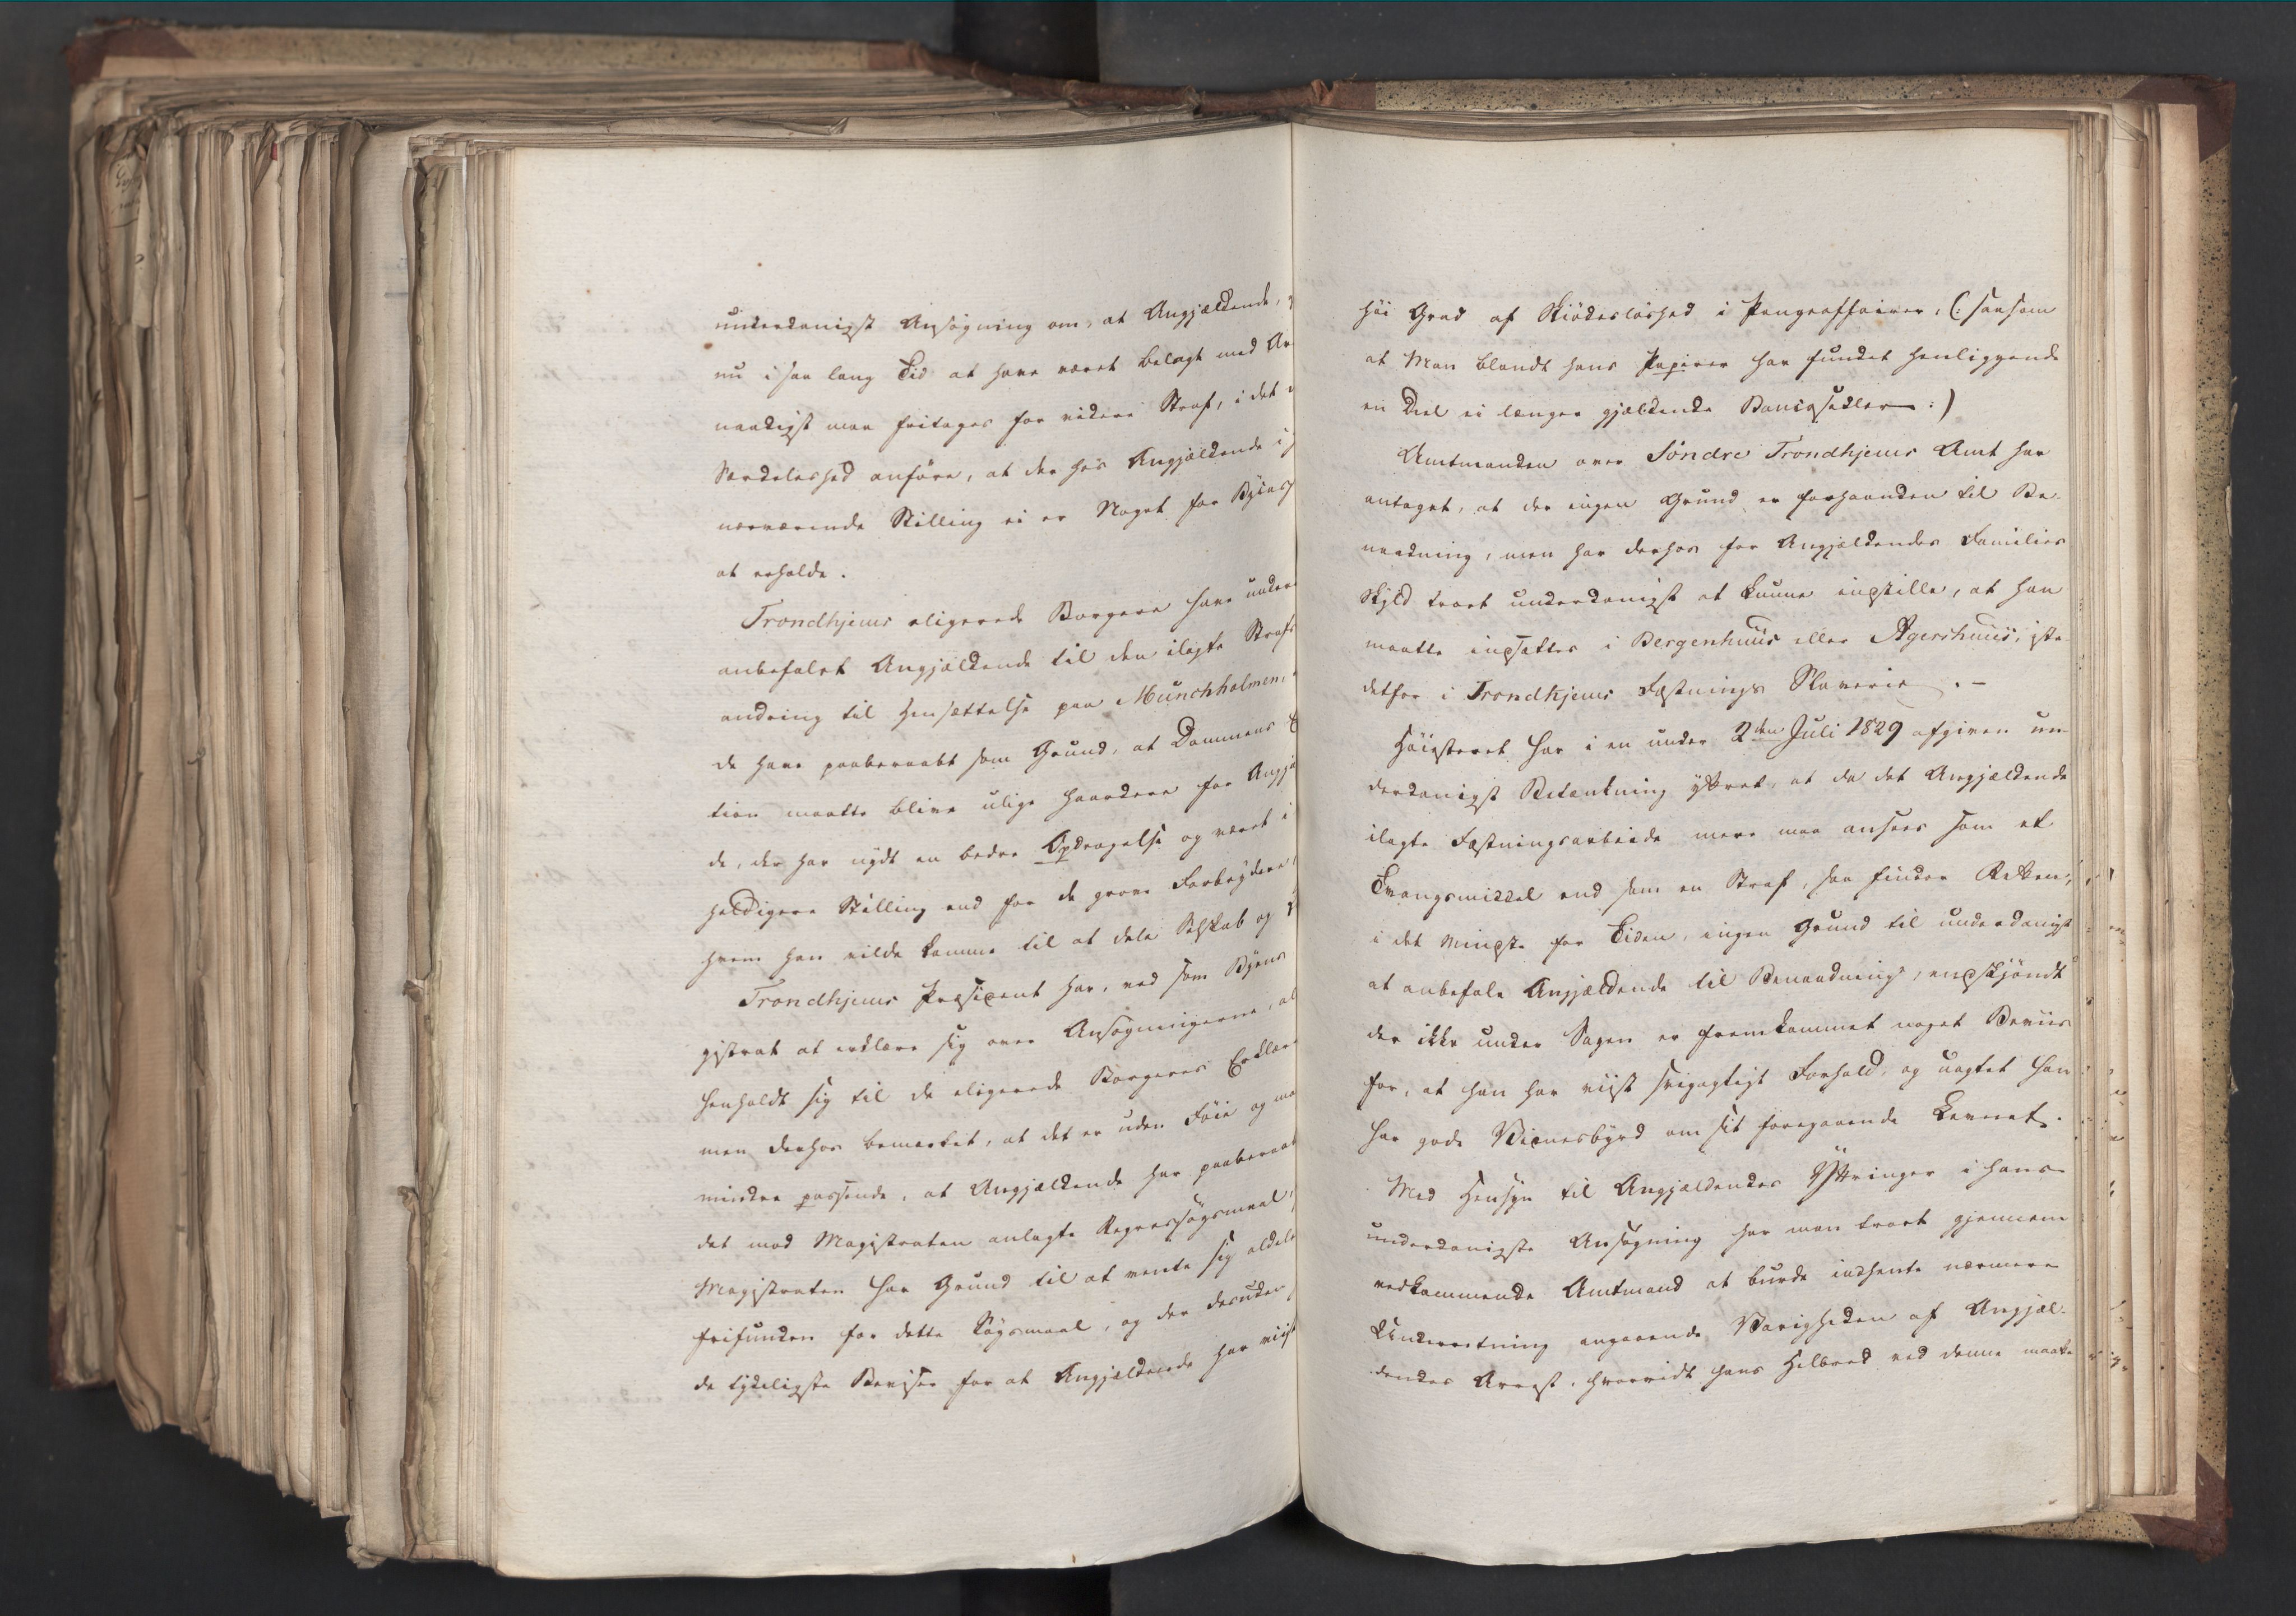 underdanigst Ansøgning om, at Angjældende,
nu i saa lang Tid at have været belagt med Ar
naadigst maa fritages for videre Straf, i det
Særdeleshed anføre, at der hos Angjældende i
nærværende Stilling ei er Noget for Byens
at erholde.
Trondhjems eligerede Borgere have under
anbefalet Angjældende til den ilagte Strafs
andring til Hensættelse paa Munchholmen,
de have paaberaabt som Grund, at Dommens E
tion maatte blive ulige haardere for Angjæ
de, der har nydt en bedre Opdragelse og været i
heldigere Stilling end for de grove Forbrydere,
hvem han vilde komme til at dele Selskab og
Trondhjems Præsident har, ved som Byens
gistrat at erklære sig over Ansøgningerne, al
henholdt sig til de eligerede Borgeres Erklær
men derhos bemærket, at det er uden Føie og ma
mindre passende, at Angjældende har paaberaab
det mod Magistraten anlagte Regressøgsmaal,
Magistraten har Grund til at vente sig aldel
frifunden for dette Søgsmaal, og der desuden
de tydeligste Beviser for at Angjældende har viist
høi Grad af Skiødesløshed i Pengeaffairer, (: saasom
at Man blandt hans Papirer har fundet henliggende
en Deel ei længer gjældende Bancosedler :)
Amtmanden over Søndre Trondhjems Amt har
antaget, at der ingen Grund er forhaanden til Be-
naadning, men har derhos for Angjældendes Families
Skyld troet underdanigst at kunne indstille, at han
maatte indsættes i Bergenhuus eller Agershuus, iste-
detfor i Trondhjems Fæstnings Slaverie. -
Høiesteret har i en under 2den Juli 1829 afgiven un-
derdanigst Betænkning yttret, at da det Angjældende
ilagte Fæstningsarbeide mere maa ansees som et
Tvangsmiddel end som en Straf, saa finder Retten,
i det mindste for Tiden, ingen Grund til underdanigst
at anbefale Angjældende til Benaadning, endskjøndt
der ikke under Sagen er fremkommet noget Beviis
for, at han har viist svigagtigt Forhold, og uagtet han
har gode Vidnesbyrd om sit foregaaende Levnet.
Med Hensyn til Angjældendes Yttringer i hans
underdanigste Ansøgning har man troet gjennem
vedkommende Amtmand at burde indhente nærmere
Underretning angaaende Varigheden af Angjæl-
dendes Arrest, hvorvidt hans Helbred ved denne maatte